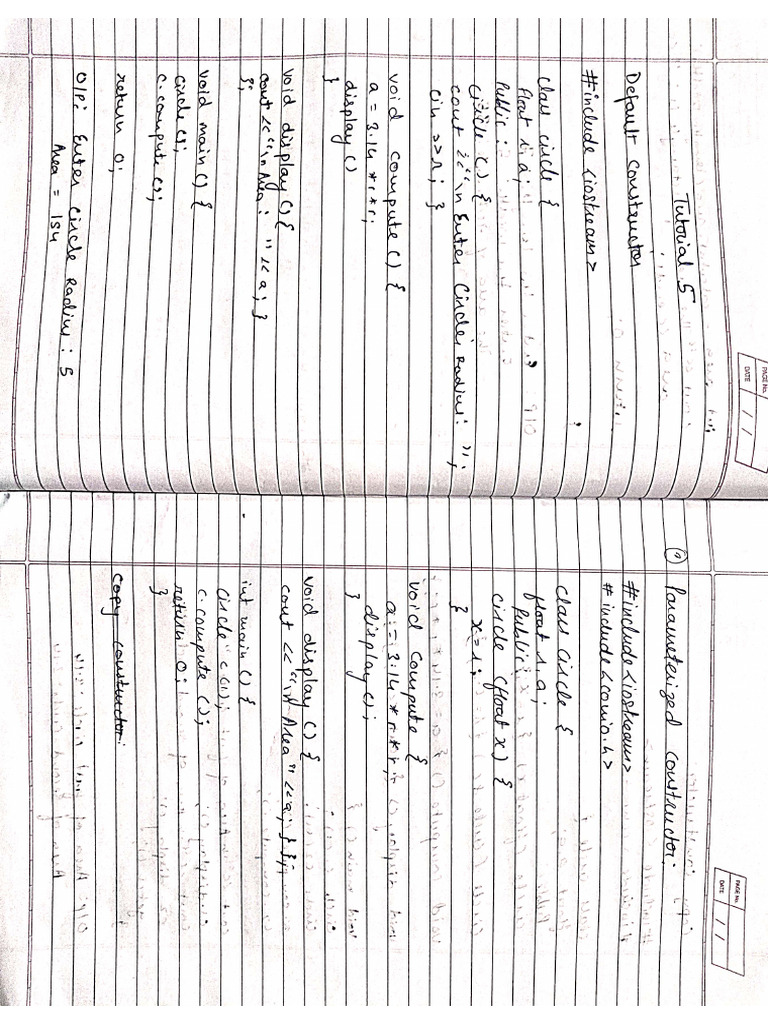 PAGE No.
DATE / /
Tutorial 5
Default Constructor
#include <iostream>
class circle {
float r, a;
Public:
circle () {
cout << "\n Enter Circle Radius: ";
cin >> r; }
void compute () {
a = 3.14 * r * r;
display ()
}
void display () {
cout << "\n Area: " << a; }
};
void main () {
circle c;
c.compute ();
return 0;
O/P: Enter Circle Radius: 5
Area = 154
PAGE No.
DATE / /
Parameterized Constructor:
#include <iostream>
#include <conio.h>
class circle {
float r, a;
public:
circle (float x) {
x = r;
}
void compute {
a = 3.14 * r * r;
display ();
}
void display () {
cout << "\n Area" << a; } };
int main () {
circle c (1);
c.compute ();
return 0;
}
Copy constructor: